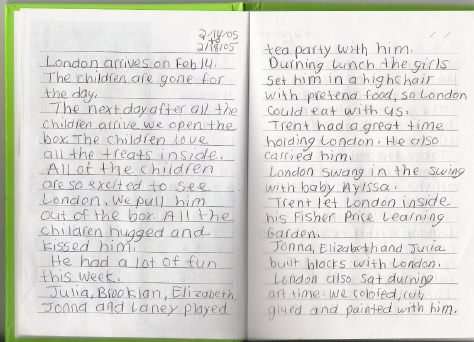 2/14/05
to
2/18/05
London arrives on Feb 14.
The children are gone for
the day.
The next day after all the
children arrive we open the
box. The children love
all the treats inside.
All of the children
are so excited to see
London. We pull him
out of the box. All the
children hugged and
kissed him.
He had a lot of fun
this week.
Julia, Brooklan, Elizabeth,
Jonna and Laney played
tea party with him.
Durning lunch the girls
set him in a highchair
with pretend food, so London
could eat with us.
Trent had a great time
holding London. He also
carried him.
London swang in the swing
with baby Aylssa.
Trent let London inside
his Fisher Price Learning
Garden.
Jonna, Elizabeth and Julia
built blocks with London.
London also sat durning
art time. We colored, cut,
glued and painted with him.